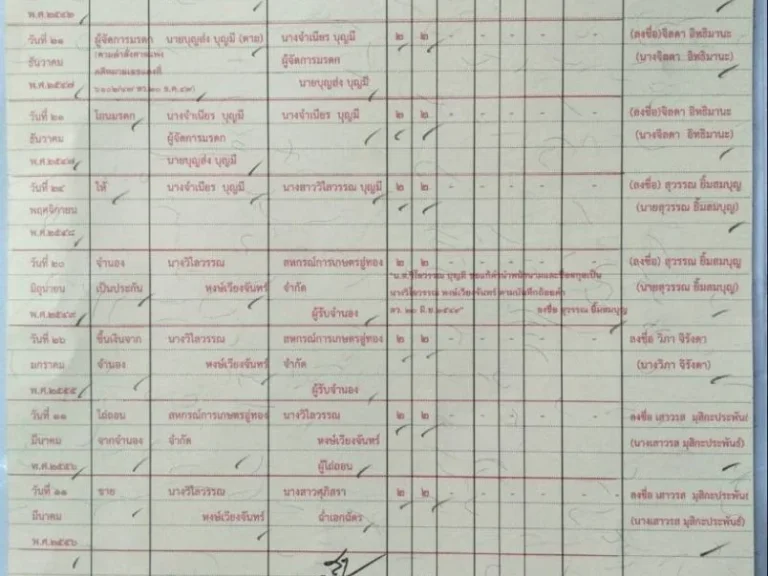 พ.ศ.๒๕๔๒
วันที่ ๒๑ ผู้จัดการมรดก นายบุญส่ง บุญมี (ตาย) นางจำเนียร บุญมี ๒ ๒ - - - - - (ลงชื่อ)จิลดา อิทธิมานะ
(ตามคำสั่งศาลแพ่ง
ธันวาคม ผู้จัดการมรดก (นางจิลดา อิทธิมานะ)
คดีหมายเลขแดงที่
พ.ศ.๒๕๔๗ นายบุญส่ง บุญมี
วันที่ ๒๑ โอนมรดก นางจำเนียร บุญมี นางจำเนียร บุญมี ๒ ๒ - - - - - (ลงชื่อ)จิลดา อิทธิมานะ
ธันวาคม ผู้จัดการมรดก (นางจิลดา อิทธิมานะ)
พ.ศ.๒๕๔๗ นายบุญส่ง บุญมี
วันที่ ๒๔ ให้ นางจำเนียร บุญมี นางสาววิไลวรรณ บุญมี ๒ ๒ - - - - - (ลงชื่อ) สุวรรณ ยิ้มสมบุญ
พฤศจิกายน (นายสุวรรณ ยิ้มสมบุญ)
พ.ศ.๒๕๔๘
วันที่ ๒๐ จำนอง นางวิไลวรรณ สหกรณ์การเกษตรอู่ทอง ๒ ๒ - - - - - (ลงชื่อ) สุวรรณ ยิ้มสมบุญ
"น.ส.วิไลวรรณ บุญมี ขอแก้คำนำหน้านามและชื่อสกุลเป็น
มิถุนายน เป็นประกัน หงษ์เวียงจันทร์ จำกัด (นายสุวรรณ ยิ้มสมบุญ)
นางวิไลวรรณ หงษ์เวียงจันทร์ ตามบันทึกถ้อยคำ
พ.ศ.๒๕๔๙ ผู้รับจำนอง ลว. ๒๐ มิ.ย.๒๕๔๙" ลงชื่อ สุวรรณ ยิ้มสมบุญ
วันที่ ๒๖ ขึ้นเงินจาก นางวิไลวรรณ สหกรณ์การเกษตรอู่ทอง ๒ ๒ - - - - - ลงชื่อ วิภา จิรังดา
มกราคม จำนอง หงษ์เวียงจันทร์ จำกัด (นางวิภา จิรังดา)
พ.ศ.๒๕๕๕ ผู้รับจำนอง
วันที่ ๑๑ ไถ่ถอน สหกรณ์การเกษตรอู่ทอง นางวิไลวรรณ ๒ ๒ - - - - - ลงชื่อ เสาวรส มุสิกะประพันธ์
มีนาคม จากจำนอง จำกัด หงษ์เวียงจันทร์ (นางเสาวรส มุสิกะประพันธ์)
พ.ศ.๒๕๕๖ ผู้ไถ่ถอน
วันที่ ๑๑ ขาย นางวิไลวรรณ นางสาวศุภิสรา ๒ ๒ - - - - - ลงชื่อ เสาวรส มุสิกะประพันธ์
มีนาคม หงษ์เวียงจันทร์ ฉ่ำเอกฉัตร (นางเสาวรส มุสิกะประพันธ์)
พ.ศ.๒๕๕๖